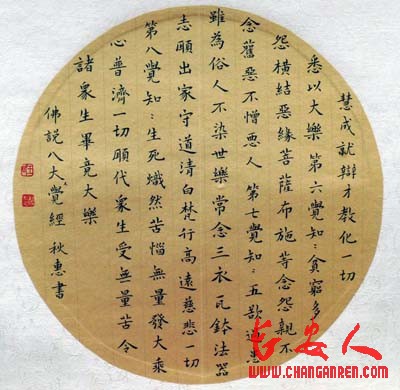 慧成就辯才教化一切
悉以大樂 第六覺知：貧窮多
怨橫結惡緣菩薩布施等念怨親不
念舊惡不憎惡人 第七覺知：五欲過患
雖為俗人不染世樂常念三衣瓦鉢法器
志願出家守道清白梵行高遠慈悲一切
第八覺知：生死熾然苦惱無量發大乘
心普濟一切願代衆生受無量苦令
諸衆生畢竟大樂
佛説八大覺經 秋惠書
长安人
WWW.CHANGANREN.COM